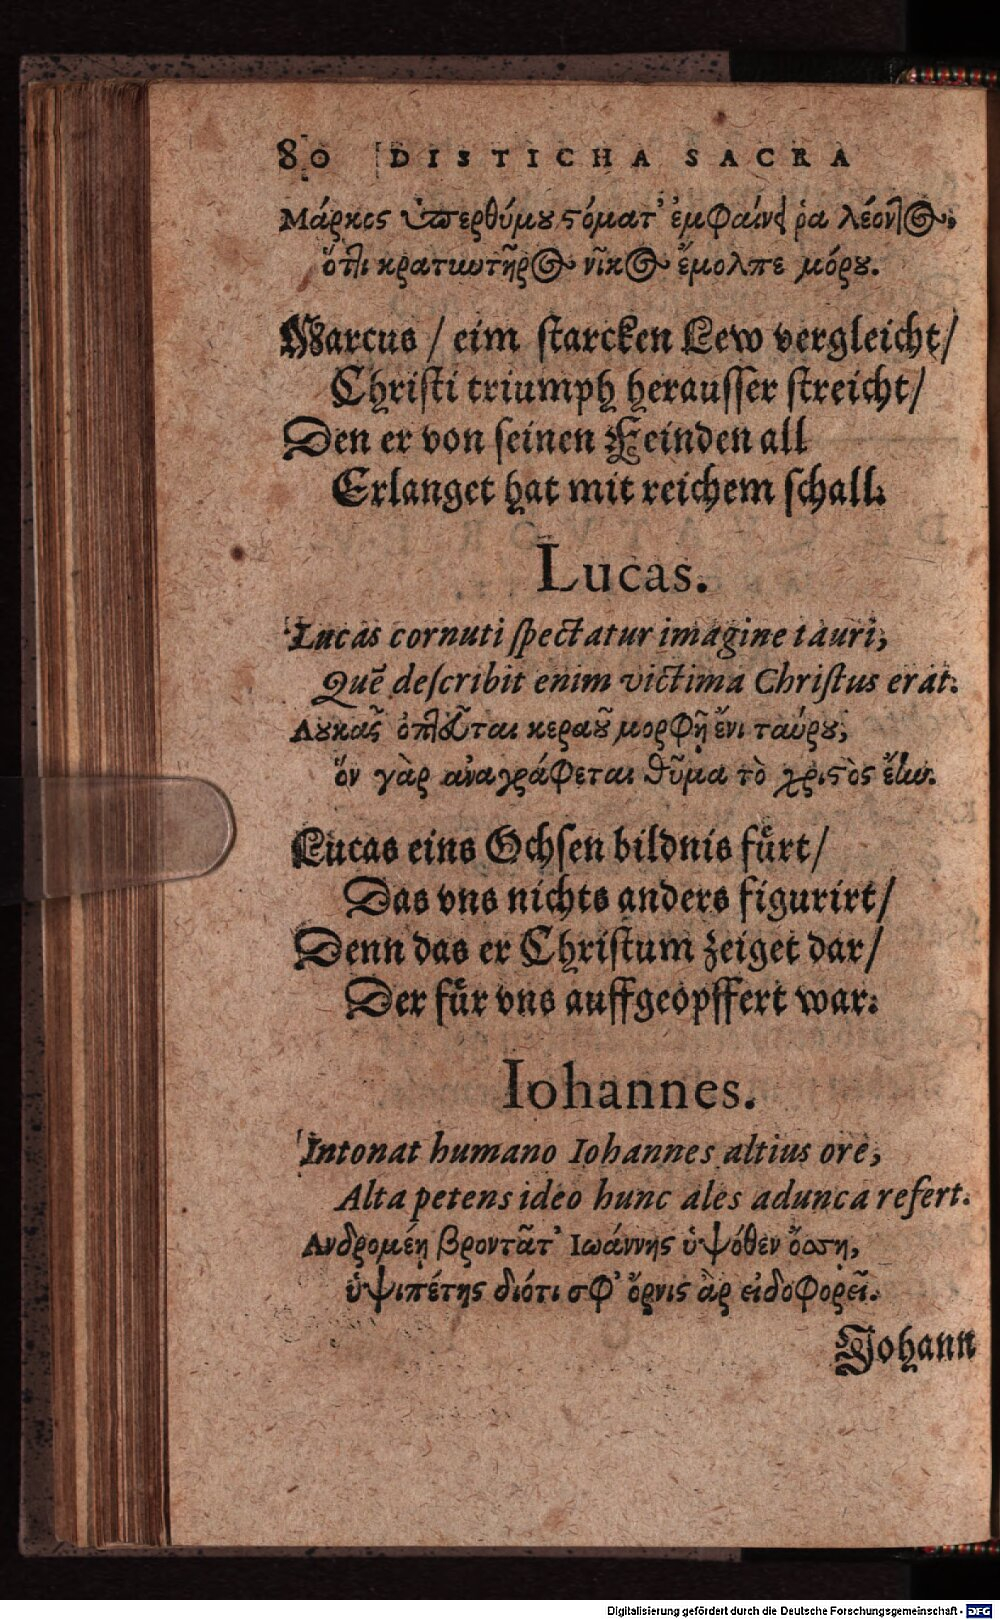 80 DISTICHA SACRA
Μάρκος ὑπερθύμου στόματ' ἐμφαίνει ῥα λέοντος,
ὅτι κρατιστῆρος νῖκος ἔμολπε μόρου.
Marcus / eim starcken Lew vergleicht /
Christi triumph herausser streicht /
Den er von seinen Feinden all
Erlanget hat mit reichem schall.
Lucas.
Lucas cornuti spectatur imagine tauri,
Quē describit enim victima Christus erat.
Λουκᾶς ὀπτᾶται κεραοῦ μορφῇ ἔνι ταύρου,
ὅν γὰρ ἀναγράφεται θῦμα τὸ χριστὸς ἔην.
Lucas eins Ochsen bildnis fuͤrt /
Das vns nichts anders figurirt /
Denn das er Christum zeiget dar /
Der fuͤr vns auffgeopffert war.
Iohannes.
Intonat humano Iohannes altius ore,
Alta petens ideo hunc ales adunca refert.
Ανδρομέῃ βροντᾶτ' Ιωάννης ὑψόθεν ὄσσῃ,
ὑψιπέτης διότι σφ' ὄρνις ἂρ εἰδοφορεῖ.
Johann
Digitalisierung gefördert durch die Deutsche Forschungsgemeinschaft - DFG